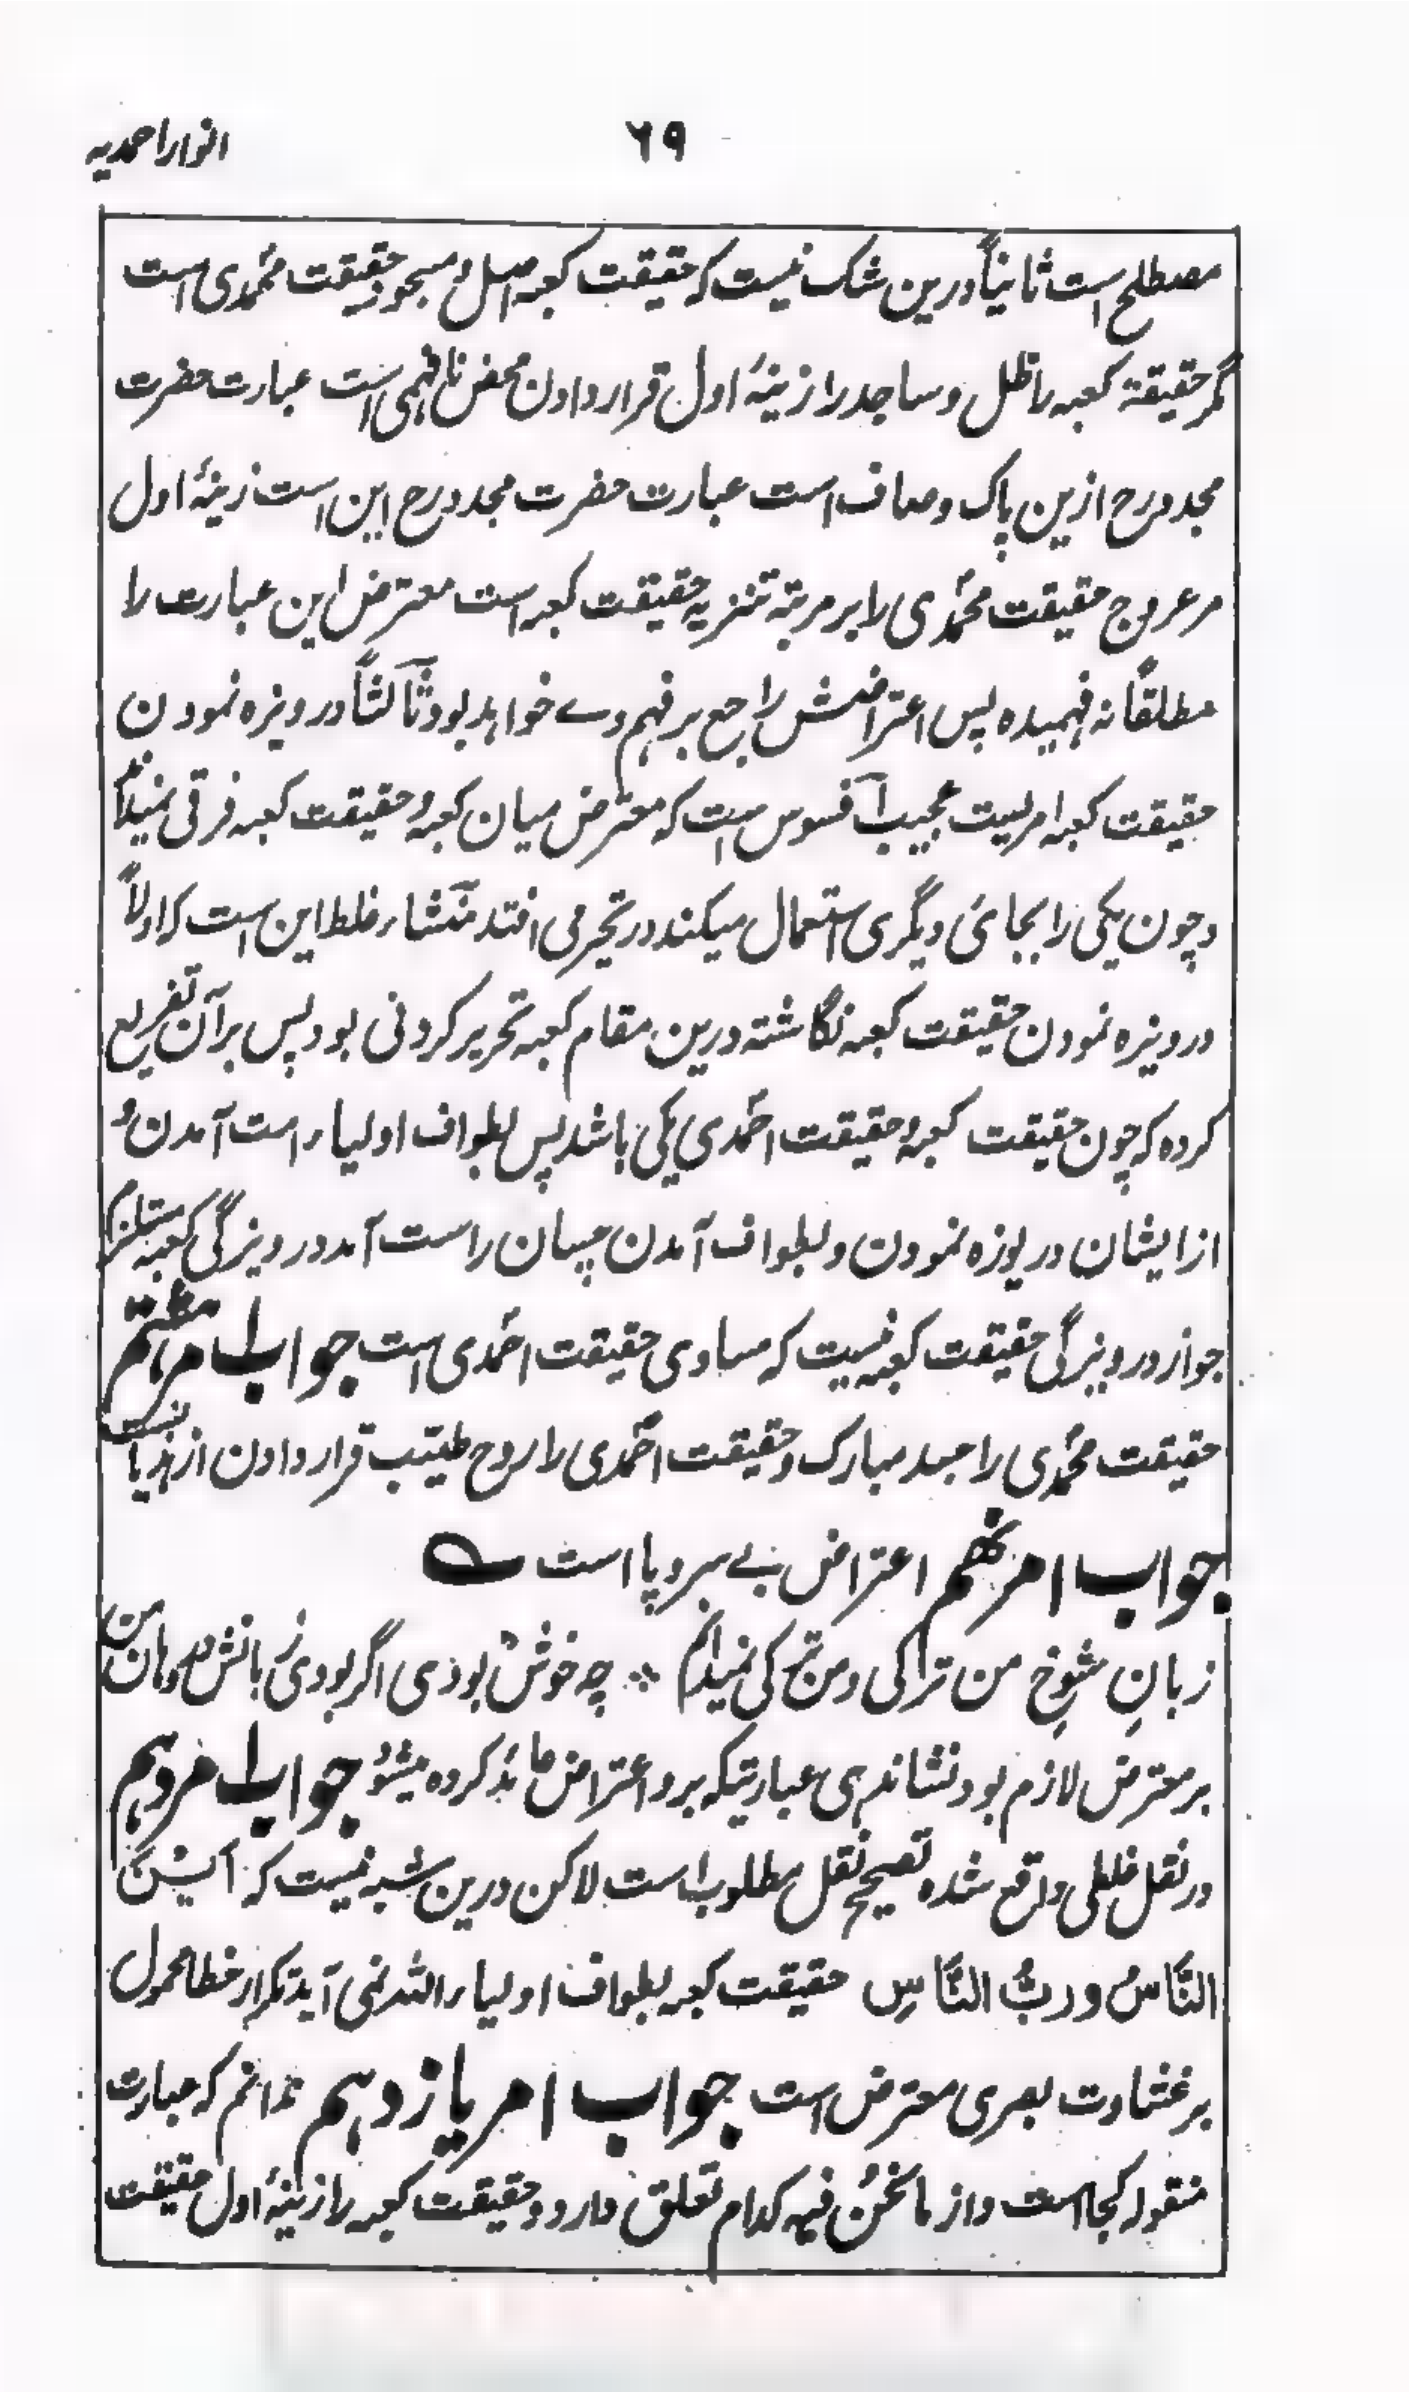 انوار احمدیہ
۶۹
مصطلح است ثانیاً درین شک نیست که حقیقت کعبه اصل و مسجود حقیقت محمدی است
مگر حقیقة کعبه را ظل و ساجد را زینۂ اول قرار دادن محض نافهمی است عبارت حضرت
مجدد رح ازین پاک و صاف است عبارت حضرت مجدد رح این است زینۂ اول
مر عروج حقیقت محمدی را بر مرتبۂ تنزیه حقیقت کعبه است معترض این عبارت را
مطلقاً نه فهمیده پس اعتراضش راجع بر فهم وے خواهد بود ثالثاً درویزه نمودن
حقیقت کعبه امریست عجیب آ افسوس است که معترض میان کعبه و حقیقت کعبه فرقی نمیداند
و چون یکی را بجائ دیگری استعمال میکند در تحیر می افتد منشاء غلط این است که اولاً
درویزه نمودن حقیقت کعبه نگاشته درین مقام کعبه تحریر کردنی بود پس بر آن تفریع
کرده که چون حقیقت کعبه و حقیقت احمدی یکی باشد پس بطواف اولیاء راست آمدن و
از ایشان دریوزه نمودن و بطواف آمدن چسان راست آمد درویزگی کعبه مستلزم
جواز درویزگی حقیقت کعبه نیست که مساوی حقیقت احمدی است جواب امر هشتم
حقیقت محمدی را جسد مبارک و حقیقت احمدی را روح طیب قرار دادن از هذیانست
جواب امر نهم اعتراض بے سر و پا است ے
زبانِ شوخِ من ترکی و من ترکی نمیدانم ∴ چه خوش بودی اگر بودی زبانش در دهان من
بر معترض لازم بود نشاندهی عبارتیکه برو اعتراض عائد کرده میشود جواب امر دهم
در نقل غلطی واقع شده تصحیح نقل مطلوب است لاکن درین شبه نیست که اَیْنَ
النَّاسُ و ربُّ النَّاسِ حقیقت کعبه بطواف اولیاء الله نمی آید تکرار خطا محمول
بر غشاوت بصری معترض است جواب امر یازدهم ندانم که عبارت
منقوله کجا است و از ما نحنُ فیه کدام تعلق دارد و حقیقت کعبه را زینۂ اول حقیقت